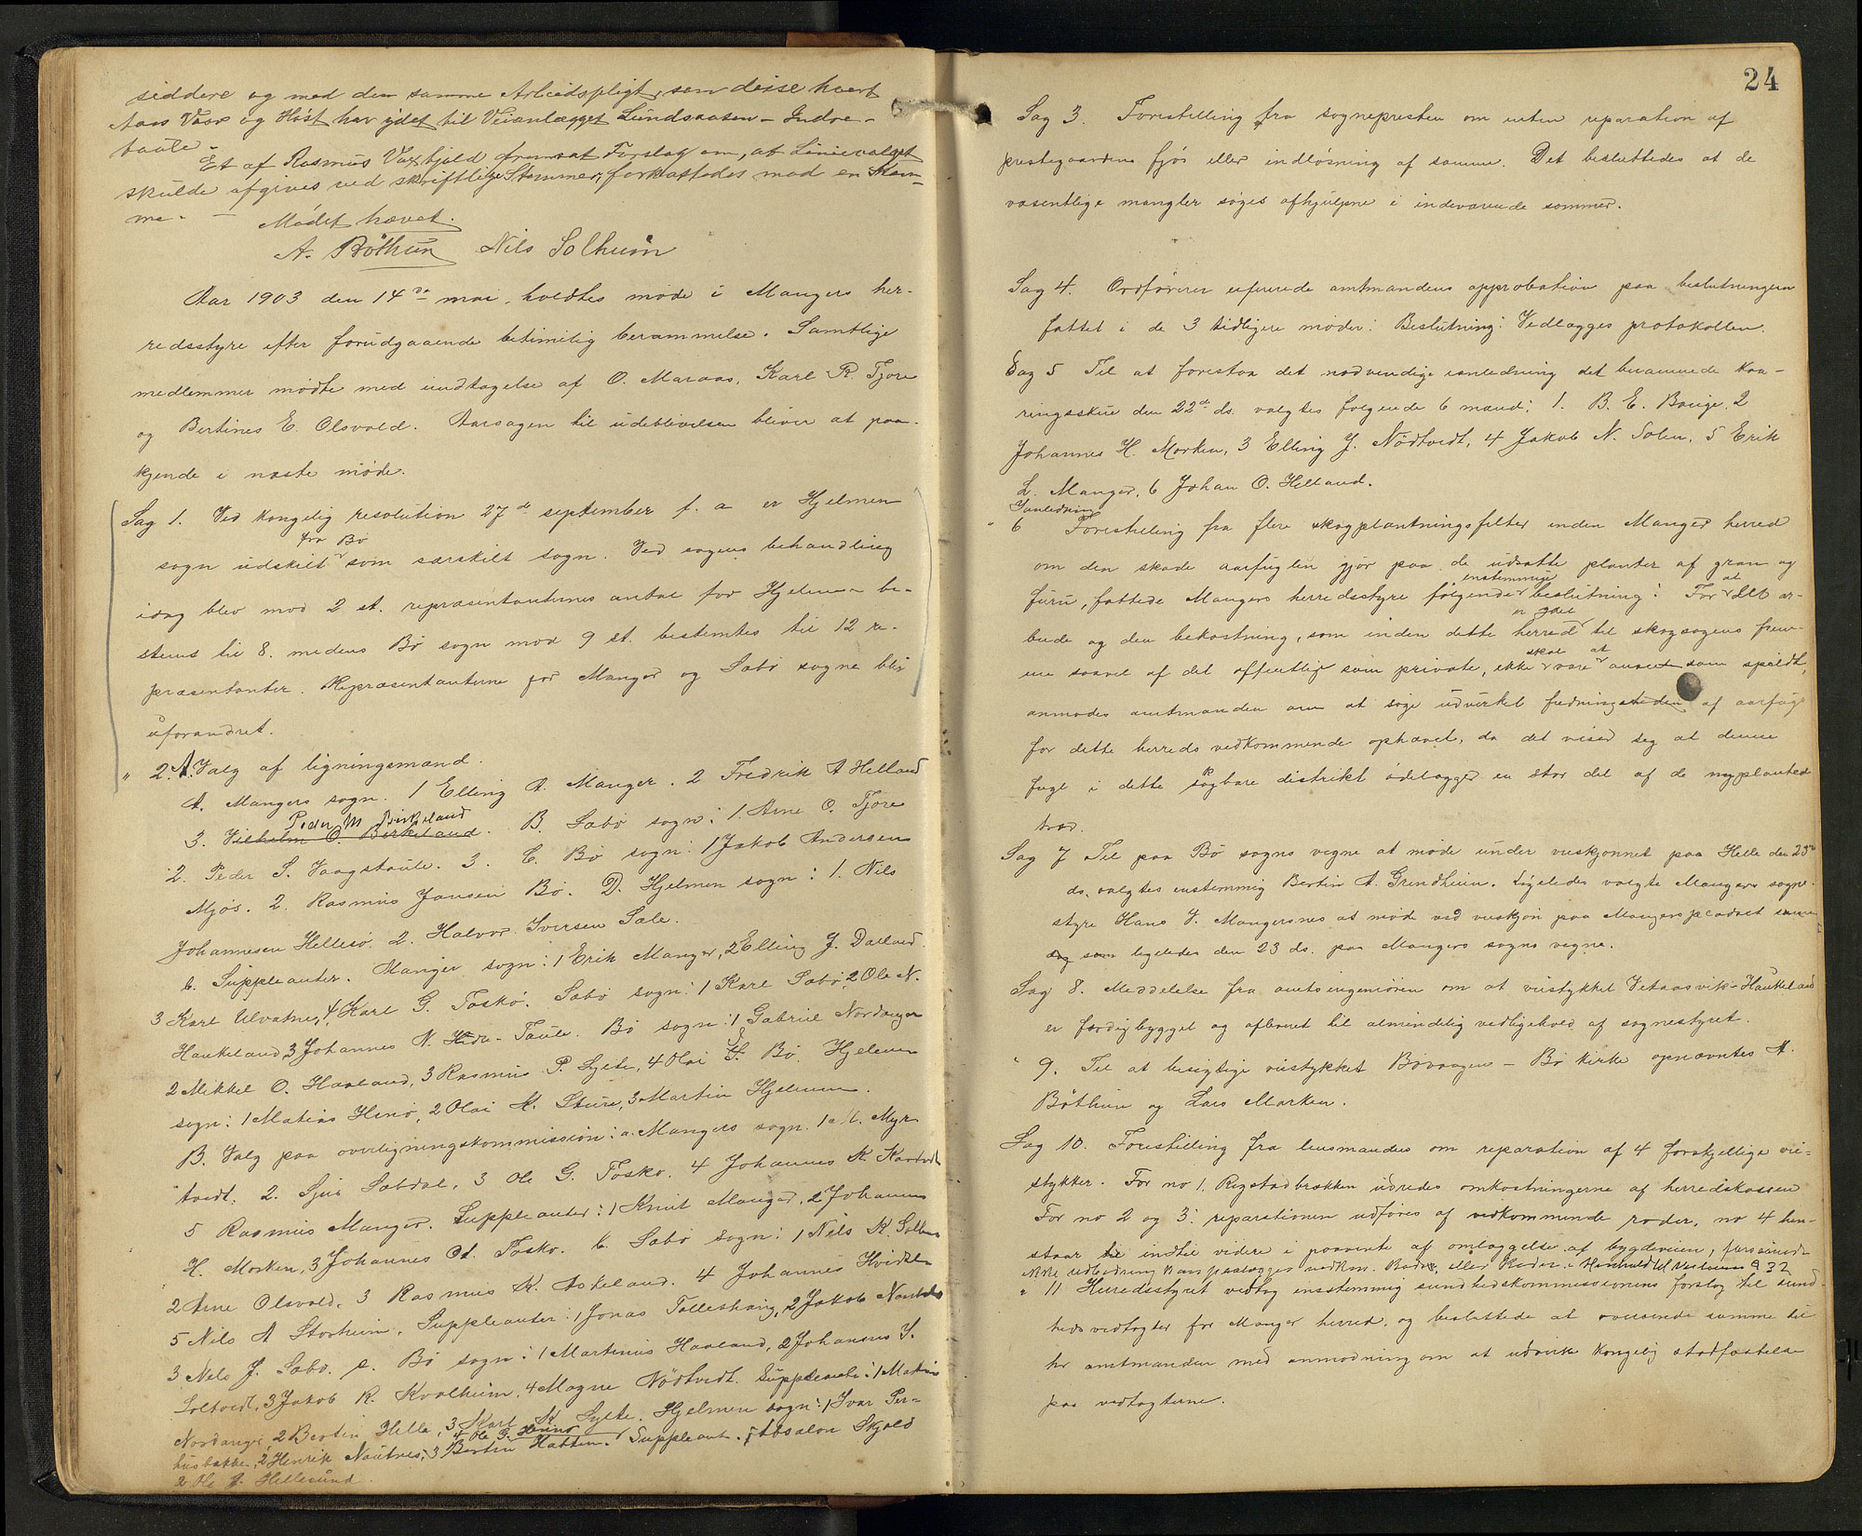 siddere og med den samme Arbeidspligt, som disse hvert
Aars Vaar og Høst har ydet til Veianlægget Lundsaasen - Indre-
taule -
Et af Rasmus Vaxhjold fremsat Forslag om, at Linievalget
skulde afgives ved skriftlige Stemmer, forkastedes mod en Stem-
me. -
Mødet hævet.
A. Bøthun Nils Solheim
Aar 1903 den 14de mai holdtes møde i Mangers her-
redsstyre efter forudgaaende betimelig berammelse. Samtlige
medlemmer mødte med undtagelse af O. Maraas, Karl R. Fjore
og Bertines E. Olsvold. Aarsagen til udeblivelsen bliver at paa-
kjende i næste møde.
Sag 1. Ved kongelig resolution 27de september f. a. er Hjelmen
fra Bø
sogn udskilt som særskilt sogn. Ved sagens behandling
idag blev mod 2 st. repræsentanternes antal for Hjelmen be-
stemt til 8. medens Bø sogn mod 9 st. bestemtes til 12 re-
præsentanter. Repræsentanterne for Manger og Sæbø sogne blir
uforandret.
" 2. A. Valg af ligningsmænd.
A. Mangers sogn. 1 Elling A. Manger. 2 Fredrik A Helland
Peder M Birkeland
3. Vilhelm O. Birkeland. B. Sæbø sogn: 1. Arne O. Fjore
2. Peder S. Vaagstaule. 3. C. Bø sogn: 1 Jakob Andersen
Mjøs. 2. Rasmus Jansen Bø. D. Hjelmen sogn: 1. Nils
Johannesen Hellesø. 2. Halvor Iversen Sæle.
b. Suppleanter. Manger sogn: 1 Erik Manger, 2 Elling J. Dalland
3 Karl Ulvatne, 4 Karl G. Toskø. Sæbø sogn: 1 Karl Sæbø, 2 Ole N.
Haukeland, 3 Johannes N. Taule. Bø sogn: 1 Gabriel Nordanger
2 Mikkel O. Haaland, 3 Rasmus P. Sylte, 4 Olai Bø. Hjelmen
sogn: 1 Matias Henø, 2 Olai A. Sture, 3 Martin Hjelmen.
B. Valg paa overligningskommission: a. Mangers sogn. 1 Myr-
tvedt. 2. Sjur Sæbdal, 3 Ole G. Toskø. 4 Johannes K.
5 Rasmus Manger. Suppleanter: 1 Knut Manger, 2 Johannes
H. Morken, 3 Johannes Toskø. b. Sæbø sogn: 1 Nils K.
2 Arne Olsvold, 3 Rasmus K. Askeland. 4 Johannes
5 Nils A Storheim. Suppleanter: 1 Jonas Tolleshaug, 2 Jakob
3 Nils J. Sæbø. c. Bø sogn: 1 Martinus Haaland, 2 Johannes
Soltvedt, 3 Jakob R. Kvalheim, 4 Magne Nødtvedt. Suppleanter: 1
Nordanger, 2 Bertin Helle, 3 Karl K Sylte. Hjelmen sogn: 1 Ivar Per-
4 Ole G. Hennø
husbakke, 2 Henrik Nautnes, 3 Bertin Hatten. Suppleant. 1 Absalon Skjold
2 Ole Hellesund.
24
Sag 3. Forestilling fra sognepresten om enten reparation af
prestegaardens fjøs eller indløsning af samme. Det besluttedes at de
væsentlige mangler søges afhjulpne i indeværende sommer.
Sag 4. Ordføreren refererede amtmandens approbation paa beslutningen
fattet i de 3 tidligere møder: Beslutning: Vedlægges protokollen.
Sag 5 Til at forestaa det nødvendige i anledning det berammede kaa-
ringsskue den 22de ds. valgtes følgende 6 mænd: 1. B. E. Bauge, 2
Johannes H. Morken, 3 Elling J. Nødtvedt, 4 Jakob N. Solen, 5 Erik
L. Manger, 6 Johan O. Helland.
I anledning
" 6 Forestilling fra flere skogplantningsfelter inden Manger herred
om den skade aarfuglen gjør paa de udsatte planter af gran og
enstemmige at
furu, fattede Mangers herredsstyre følgende beslutning: For det ar-
er ydet
beide og den bekostning, som inden dette herred til skogsagens frem-
skal at
me saavel af det offentlige som private, ikke være anseet som spildt,
anmodes amtmanden om at søge udvirket fredningstiden af aarfugl
for dette herreds vedkommende ophævet, da det viser sig at denne
fugl i dette skogbare distrikt ødelægger en stor del af de nyplantede
træer.
Sag 7 Til paa Bø sogns vegne at møde under veiskjønnet paa Helle den 23de
ds. valgtes enstemmig Bertin A. Grendheim. Ligeledes valgte Mangers sogne-
styre Hans J. Mangersnes at møde ved veiskjøn paa Mangers
som ligeledes den 23 ds. paa Mangers sogns vegne.
Sag 8. Meddelelse fra amtsingeniøren om at veistykket Vetaasvik - Haukeland
er færdigbygget og afleveret til almindelig vedligehold af sognestyret.
" 9. Til at besigtige veistykket Bøvaagen - Bø kirke opnævntes A.
Bøthun og Lars Marken.
Sag 10. Forestilling fra lensmanden om reparation af 4 forskjellige vei-
stykker. For no 1, Rogstadbrækken udredes omkostningerne af herredskassen
For no 2 og 3: reparationen udføres af vedkommende roder, no 4 hen-
staar til indtil videre i paavente af omlæggelse af bygdeveien, forsaavidt
ikke udbedring kan paalægges vedkm. Rode eller Roder. i Henhold til Veilovens § 32
" 11 Herredsstyret vedtog enstemmig sundhedskommissionens forslag til sund-
hedsvedtægter for Manger herred, og besluttede at oversende samme til
hr amtmanden med anmodning om at udvirke kongelig stadfæstelse
paa vedtægterne.